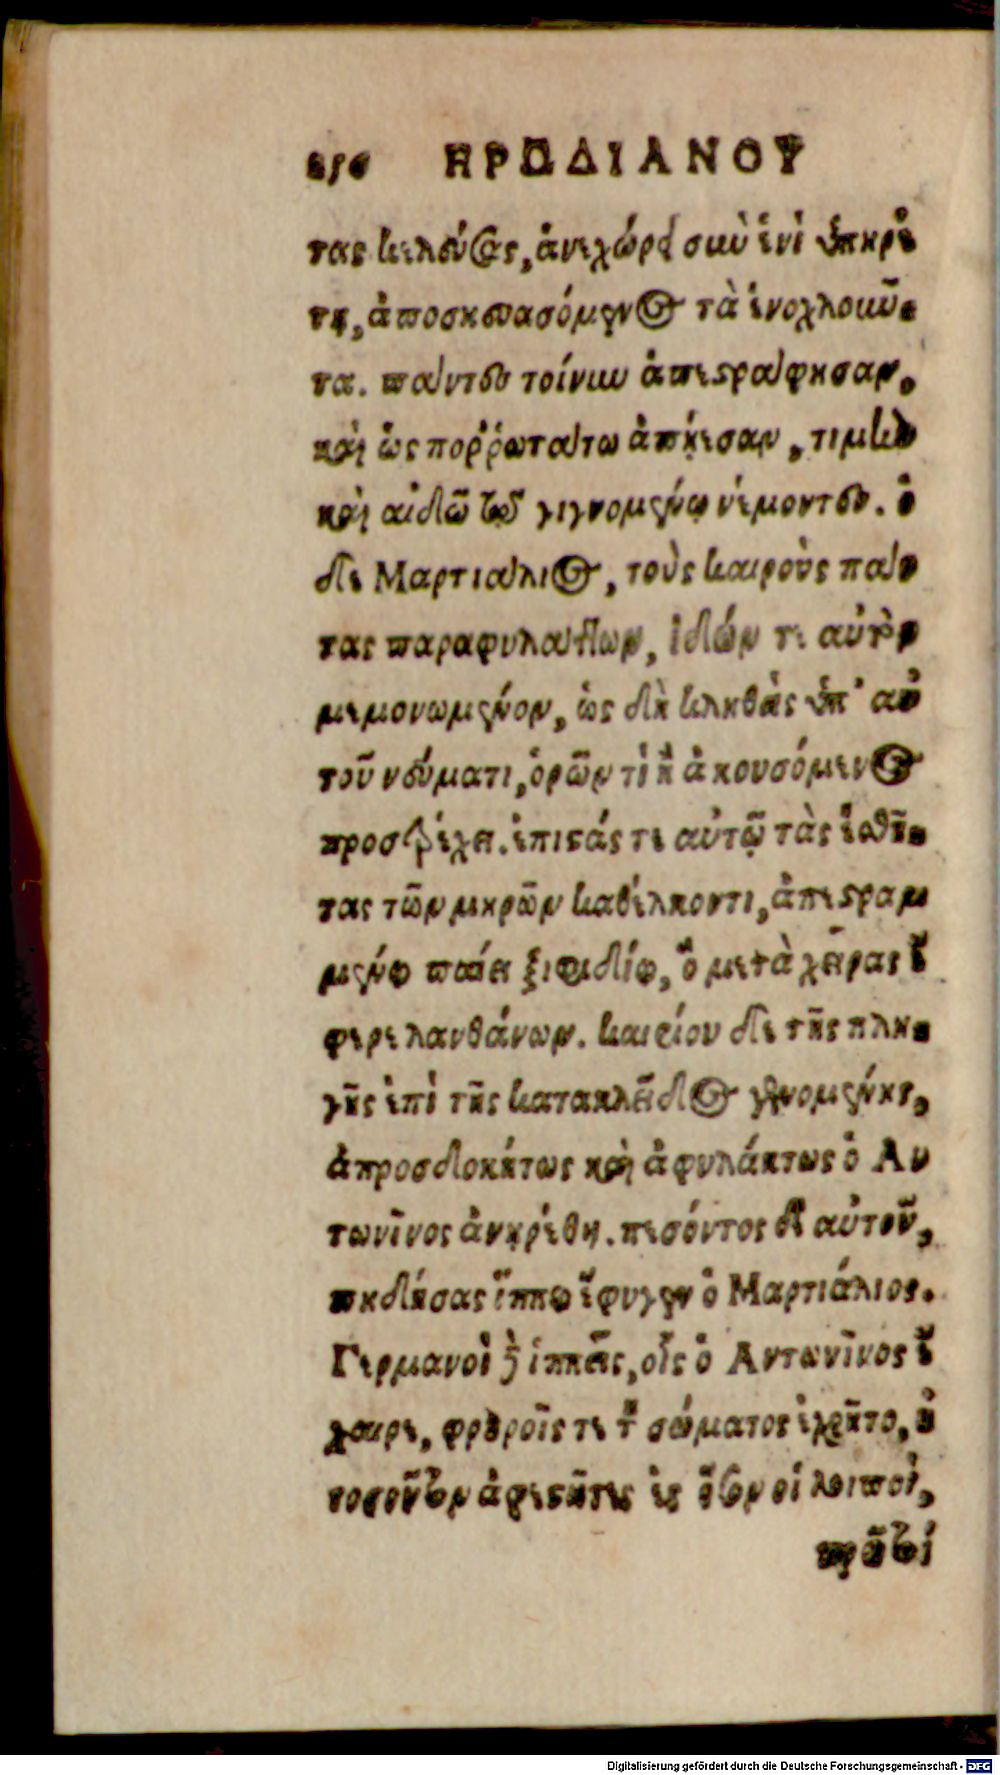 256 ΗΡΩΔΙΑΝΟΥ
τας κελεύσας, ἀνεχώρει σὺν ἑνὶ ὑπηρέ
τῃ, ἀποσκευασόμενος τὰ ἐνοχλοῦν
τα. πάντες τοίνυν ἀπεστράφησαν,
καὶ ὡς ποῤῥωτάτω ἀπῄεσαν, τιμὴν
καὶ αἰδῶ τῷ γιγνομένῳ νέμοντες. ὁ
δὲ Μαρτιάλιος, τοὺς καιροὺς πάν
τας παραφυλάττων, ἰδών τε αὐτὸν
μεμονωμένον, ὡς δὴ κληθεὶς ὑπ' αὐ
τοῦ νεύματι, ὁρῶν τί ἢ ἀκουσόμενος
προστρέχει. ἐπιστάς τε αὐτῷ τὰς ἐσθῆ
τας τῶν μηρῶν καθέλκοντι, ἀπεστραμ
μένῳ παίει ξιφιδίῳ, ὃ μετὰ χεῖρας ἔ
φερε λανθάνων. καιρίου δὲ τῆς πλη
γῆς ἐπὶ τῆς κατακλεῖδος γενομένης,
ἀπροσδοκήτως καὶ ἀφυλάκτως ὁ Αν
τωνῖνος ἀνῃρέθη. πεσόντος δὲ αὐτοῦ,
πηδήσας ἵππῳ ἔφυγεν ὁ Μαρτιάλιος.
Γερμανοὶ δὲ ἱππεῖς, οἷς ὁ Αντωνῖνος ἔ
χαιρε, φρουροῖς τε τοῦ σώματος ἐχρῆτο, οὐ
τοσοῦτον ἀφεστῶτες ἐς ὅσον οἱ λοιποὶ,